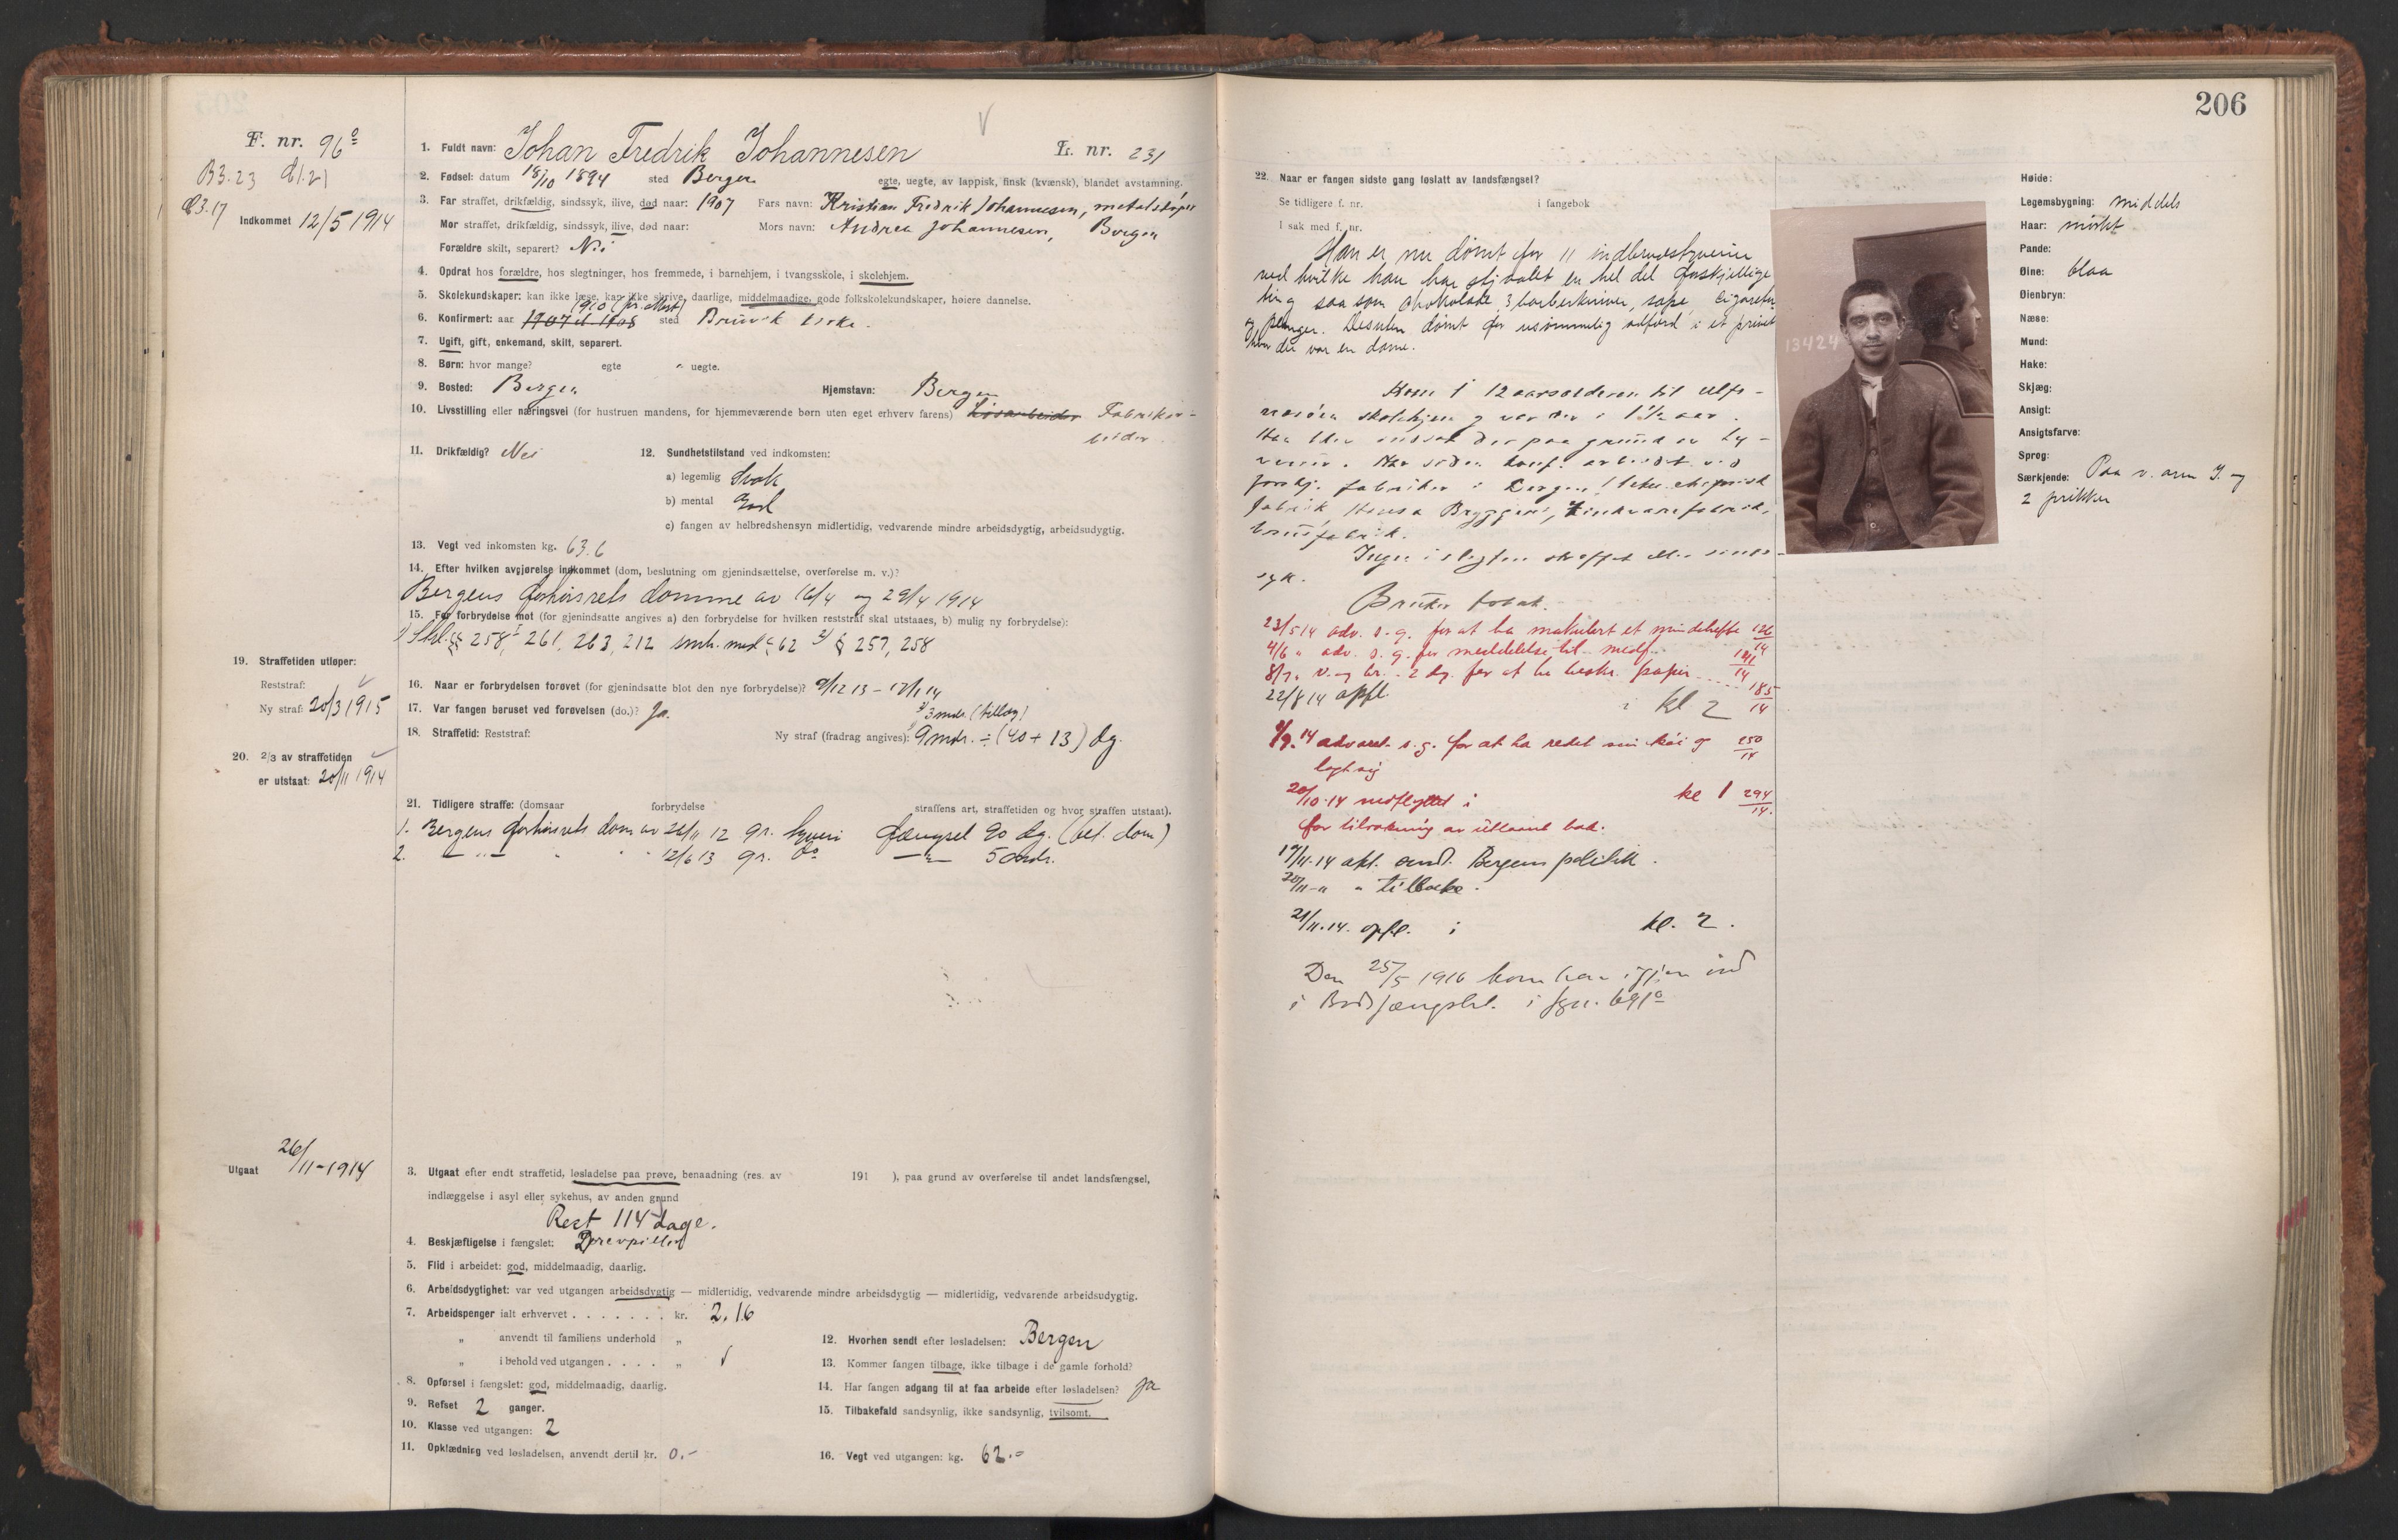 F. nr. 96a
B3.23
B3.17
Indkommet 12/5 1914
1. Fuldt navn: Johan Fredrik Johannesen L. nr. 231
2. Fødsel: datum 18/10 1894 sted Bergen egte, uegte, av lappisk, finsk (kvænsk), blandet avstamning.
3. Far straffet, drikfældig, sindssyk, ilive, død naar: 1907 Fars navn: Kristian Fredrik Johannesen, metalstøper
Mor straffet, drikfældig, sindssyk, ilive, død naar: Mors navn: Andrea Johannesen, Bergen
Forældre skilt, separert? Nei
4. Opdrat hos forældre, hos slegtninger, hos fremmede, i barnehjem, i tvangsskole, i skolehjem.
5. Skolekundskaper: kan ikke læse, kan ikke skrive, daarlige, middelmaadige, gode folkskolekundskaper, høiere dannelse.
1910 (pr. Attest)
6. Konfirmert: aar 1907 el. 1908 sted Bruvik kirke.
7. Ugift, gift, enkemand, skilt, separert.
8. Børn: hvor mange? egte uegte.
9. Bosted: Bergen Hjemstavn: Bergen
10. Livsstilling eller næringsvei (for hustruen mandens, for hjemmeværende børn uten eget erhverv farens) Løsarbeider Fabrikar-
beider
11. Drikfældig? Nei 12. Sundhetstilstand ved indkomsten:
a) legemlig Svak
b) mental God
c) fangen av helbredshensyn midlertidig, vedvarende mindre arbeidsdygtig, arbeidsudygtig.
13. Vegt ved inkomsten kg. 63.6
14. Efter hvilken avgjørelse indkommet (dom, beslutning om gjenindsættelse, overførelse m. v.)?
Bergens forhørsrets domme av 16/4 og 29/4 1914
15. For forbrydelse mot (for gjenindsatte angives a) den forbrydelse for hvilken reststraf skal utstaaes, b) mulig ny forbrydelse):
1) Strl. §§ 258, 261, 263, 212 smh. med § 62 2) § 257, 258
19. Straffetiden utløper:
Reststraf:
Ny straf: 20/3 1915
16. Naar er forbrydelsen forøvet (for gjenindsatte blot den nye forbrydelse)? 9/12 13 – 17/1 14
17. Var fangen beruset ved forøvelsen (do.)? Ja. 2) 3 mdr. (tillæg)
18. Straffetid: Reststraf: Ny straf (fradrag angives): 1) 9 mdr. ÷ (40 + 13) dg.
20. 2/3 av straffetiden
er utstaat: 20/11 1914
21. Tidligere straffe: (domsaar forbrydelse straffens art, straffetiden og hvor straffen utstaat).
1. Bergens forhørsrets dom av 26/11 12 gr. tyveri fængsel 90 dg. (bet. dom)
2. — „ — 12/6 13 gr. do — „ — 5 mdr.
Utgaat 26/11-1914
3. Utgaat efter endt straffetid, løsladelse paa prøve, benaadning (res. av 191 ), paa grund av overførelse til andet landsfængsel,
indlæggelse i asyl eller sykehus, av anden grund
Rest 114 dage.
4. Beskjæftigelse i fængslet: Drevpilleri
5. Flid i arbeidet: god, middelmaadig, daarlig.
6. Arbeidsdygtighet: var ved utgangen arbeidsdygtig — midlertidig, vedvarende mindre arbeidsdygtig — midlertidig, vedvarende arbeidsudygtig.
7. Arbeidspenger ialt erhvervet . . . . . . . kr. 2.16
„ anvendt til familiens underhold „
„ i behold ved utgangen . . . . „
8. Opførsel i fængslet: god, middelmaadig, daarlig.
9. Refset 2 ganger.
10. Klasse ved utgangen: 2
11. Opklædning ved løsladelsen, anvendt dertil kr. 0.-
12. Hvorhen sendt efter løsladelsen: Bergen
13. Kommer fangen tilbage, ikke tilbage i de gamle forhold?
14. Har fangen adgang til at faa arbeide efter løsladelsen? Ja
15. Tilbakefald sandsynlig, ikke sandsynlig, tvilsomt.
16. Vegt ved utgangen: kg. 62.-
206
22. Naar er fangen sidste gang løslatt av landsfængsel?
Se tidligere f. nr. i fangebok
I sak med f. nr.
Han er nu dømt for 11 indbrudstyverier
ved hvilke han har stjaalet en hel del forskjellige
ting saa som chokolade, 3 barberkniver, sæpe, cigaretter
og penger. Desuten dømt for usømmelig adfærd i et privet
hvor der var en dame.
Kom i 12 aarsalderen til Ulfs-
nesøens skolehjem og var der i 1 1/2 aar
Han blev indsat der paa grund av ty-
verier. Har siden konf. arbeidet ved
forskj. fabriker i Bergen
fabrik, Hansa Bryggeri, Tindvarefabrik,
brusfabrik.
Ingen i slegten straffet eller sinds-
syk.
Bruker tobak.
23/5 14 adv. s. g. for at ha makulert et mindehefte 126/14
4/6 „ adv. s. g. for meddelelse til medf. 141/14
8/7 „ v. og br. - 2 dg. for at ha beskr. papir . . . . 185/14
22/8 14 opfl. i kl 2
9/9.14 advaret s. g. for at ha redet sin køi og 250/14
lagt sig
20/10-14 nedflyttet i kl 1 294/14.
for tilvakning av ulovent tobak.
17/11-14 afl. anst. Bergens politik.
20/11-" " tilbake.
21/11-14. opfl. i kl. 2.
Den 25/5 1916 kom han igjen ind
i Bodsfængslet. i fgn. 691a
13424
Høide:
Legemsbygning: middels
Haar: mørkt
Pande:
Øine: blaa
Øienbryn:
Næse:
Mund:
Hake:
Skjæg:
Ansigt:
Ansigtsfarve:
Sprog:
Særkjende: Paa v. arm J. og
2 prikker